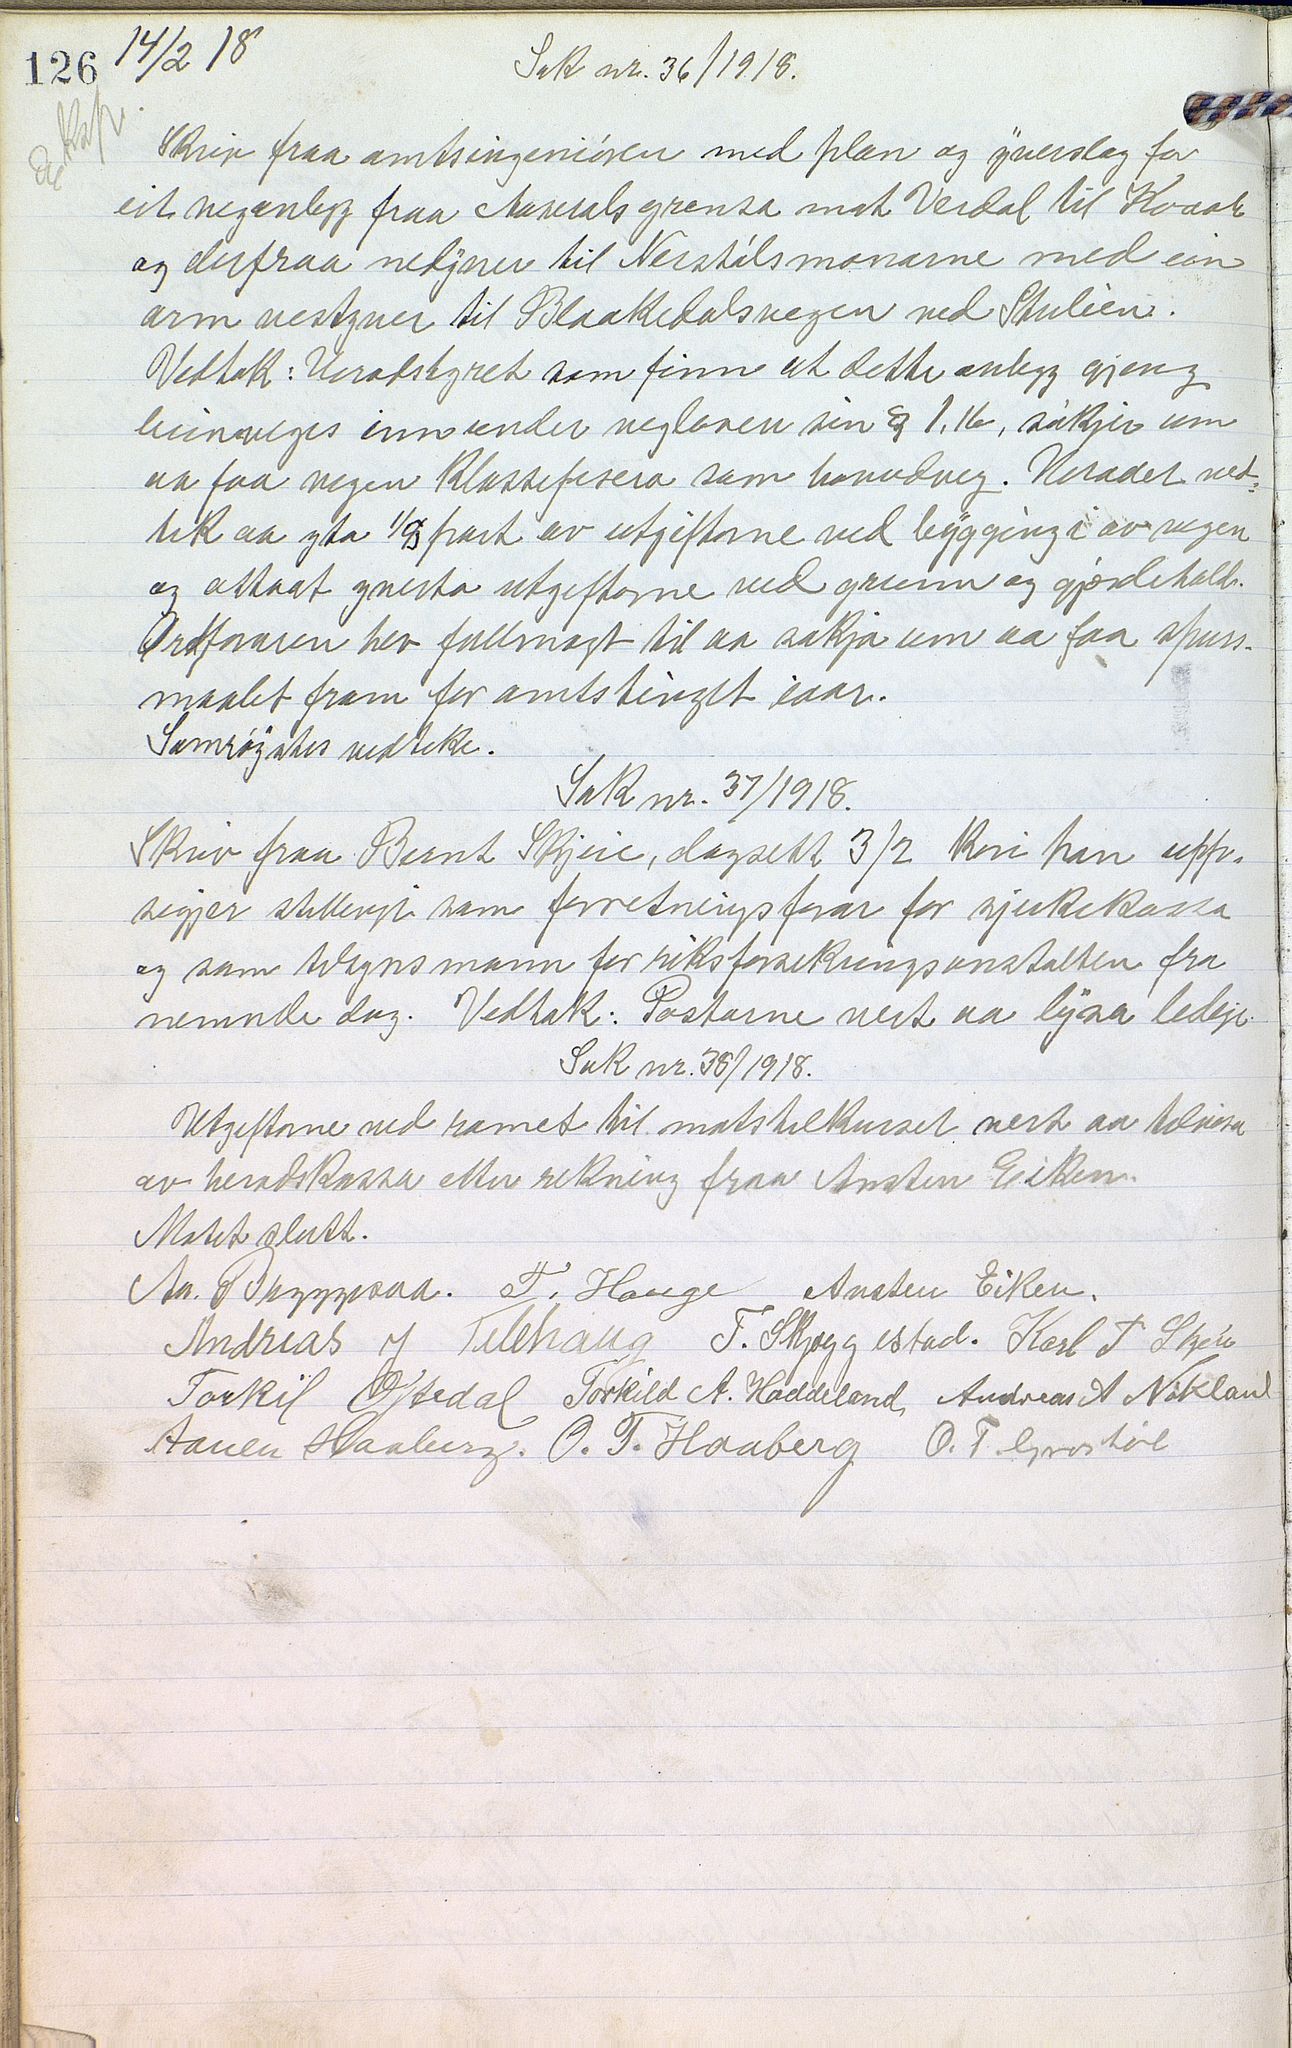 126 14/2 18
Sak nr. 36/1918.
Skriv fraa amtsingeniören med plan og yverslag for
eit veganlegg fraa Aaseralsgrensa mot Verdal til Kvaale
og derfraa nedyver til Nerstölsmonarne med ein
arm vestyver til Blaakedalsvegen ved Stulien.
Vedtak: Heradstyret som finn at dette anlegg gjeng
beinveges inn under vegloven sin § 1.16, sökjer um
aa faa vegen klassefisera som hovudveg. Heradet ved-
tek aa yta 1/8 part av utgiftorne ved byggingi av vegen
og attaat yversta utgiftorne ved grunn og gjerdehald.
Ordföraren hev fullmagt til aa søkja um aa faa spurs-
maalet fram for amtstinget iaar.
Samröystes vedteke.
Sak nr. 37/1918.
Skriv fraa Bernt Skjeie, dagsett 3/2 kori han upp-
segjer stillingi som forretningsförar for sjukekassa
og som tilsynsmann for riksforsekringsanstalten fra
nemnde dag. Vedtak: Postarne vert aa lysa ledige.
Sak nr. 38/1918.
Utgiftorne ved romet til matstelkurset vert aa tilvisa
av heradskassa etter rekning fraa Ansten Eiken.
Mötet slutt.
Aa. Bryggesaa. T. Hauge Ansten Eiken.
Andreas J Telehaug T. Skjeggestad. Karl T Skjeie
Torkil Oftedal Torkild A. Haddeland, Andreas A Nökland
Aanen Haaberg. O. T. Haaberg O. T. Grostöl